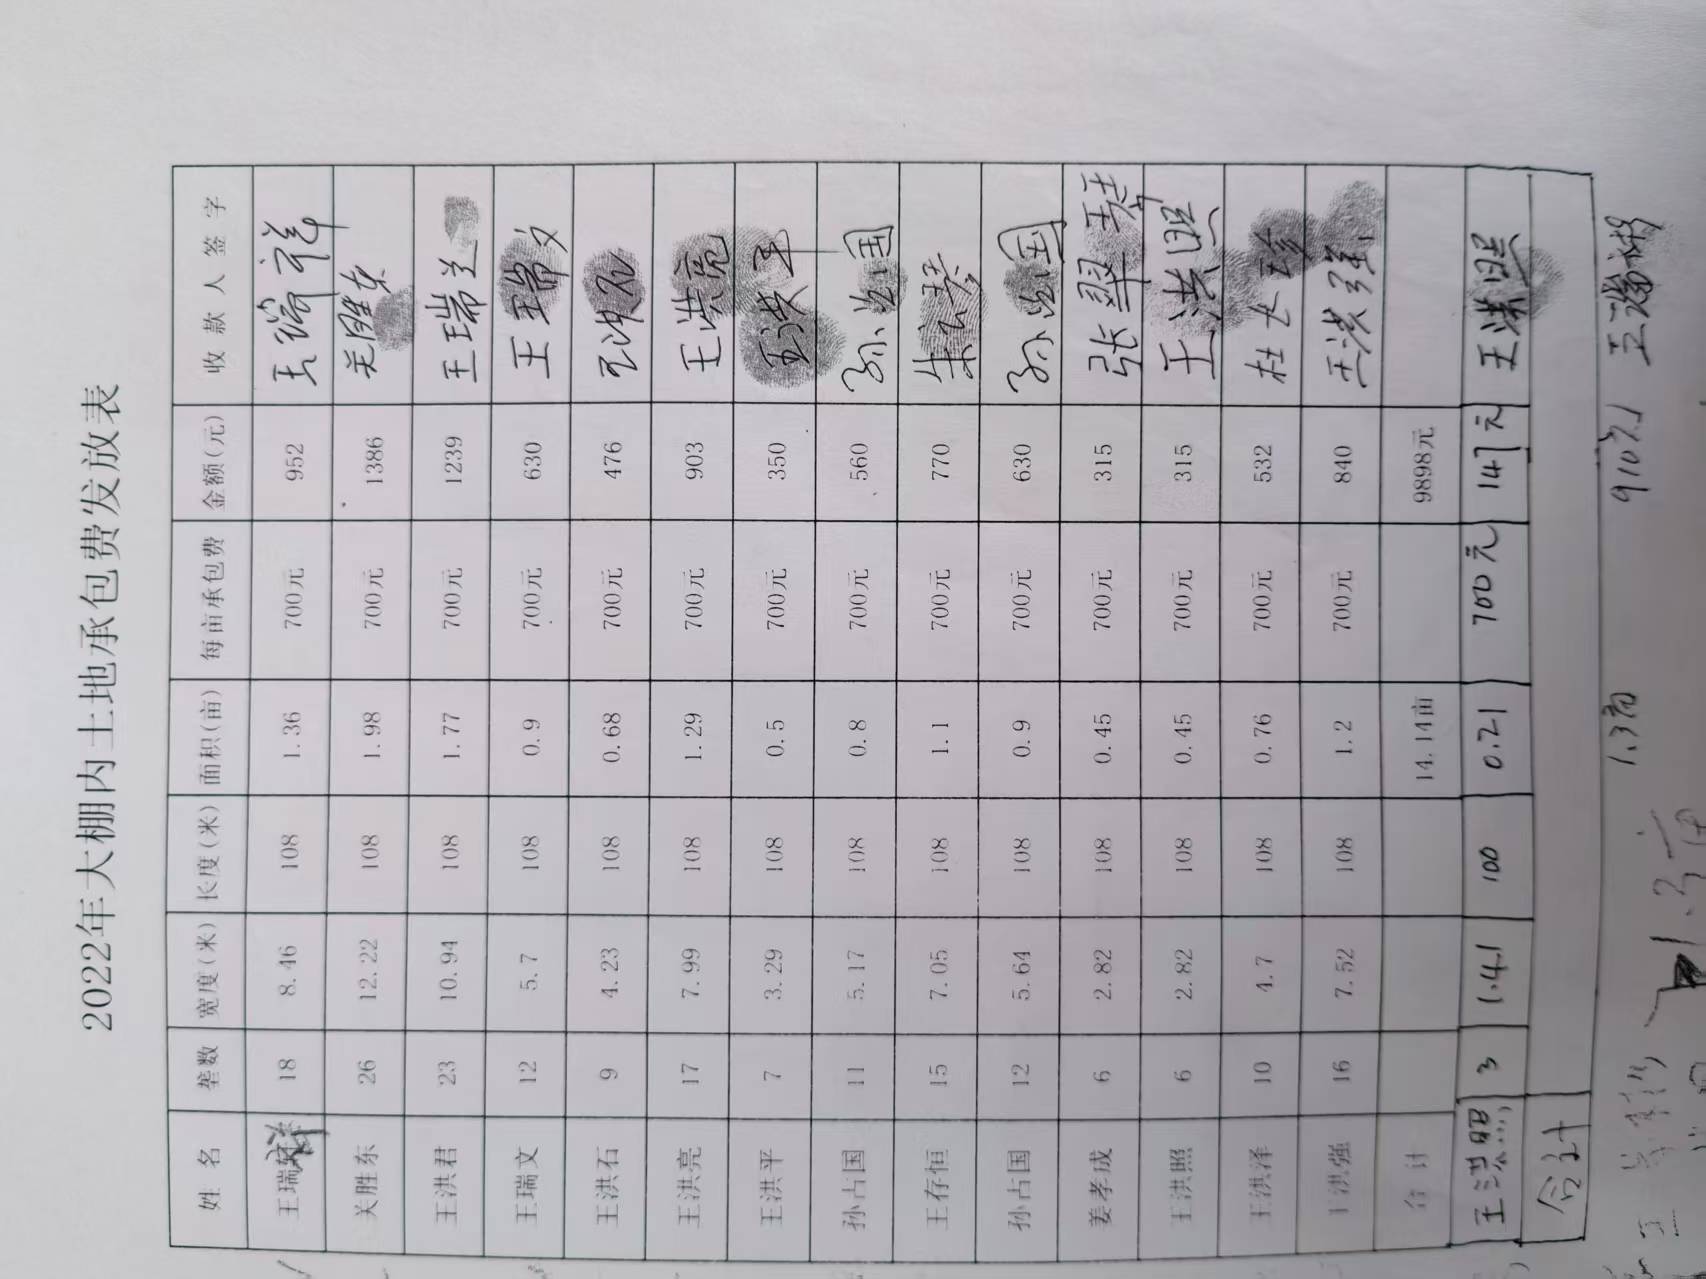 2022年大棚内土地承包费发放表
姓 名 垄数 宽度(米) 长度(米) 面积(亩) 每亩承包费 金额(元) 收 款 人 签 字
王瑞祥 18 8.46 108 1.36 700元 952 王瑞祥
关胜东 26 12.22 108 1.98 700元 1386 关胜东
王洪君 23 10.94 108 1.77 700元 1239 王瑞兰
王瑞文 12 5.7 108 0.9 700元 630 王瑞文
王洪石 9 4.23 108 0.68 700元 476
王洪亮 17 7.99 108 1.29 700元 903 王洪亮
王洪平 7 3.29 108 0.5 700元 350 王洪平
孙占国 11 5.17 108 0.8 700元 560 孙占国
王存恒 15 7.05 108 1.1 700元 770
孙占国 12 5.64 108 0.9 700元 630 孙占国
姜孝成 6 2.82 108 0.45 700元 315 张翠琴
王洪照 6 2.82 108 0.45 700元 315 王洪照
王洪泽 10 4.7 108 0.76 700元 532 杜士珍
王洪强 16 7.52 108 1.2 700元 840 王洪强
合 计 14.14亩 9898元
王洪照 3 1.41 100 0.21 700元 147元 王洪照
合计
1.3亩 910元 王瑞